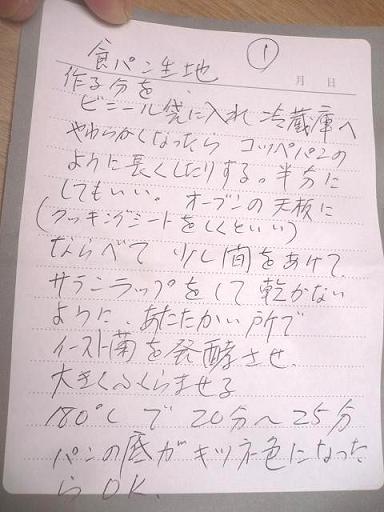 ①
食パン生地
月 日
作る分を、
ビニール袋に入れ冷蔵庫へ
やわらかくなったら コッペパンの
ように長くしたりする。半分に
してもいい。オーブンの天板に
(クッキングシートをしくといい)
ならべて 少し間をあけて、
サランラップをして乾かない
ように、あたたかい所で
イースト菌を発酵させ、
大きくふくらませる
180℃で 20分〜25分
パンの底がキツネ色になった
らOK.